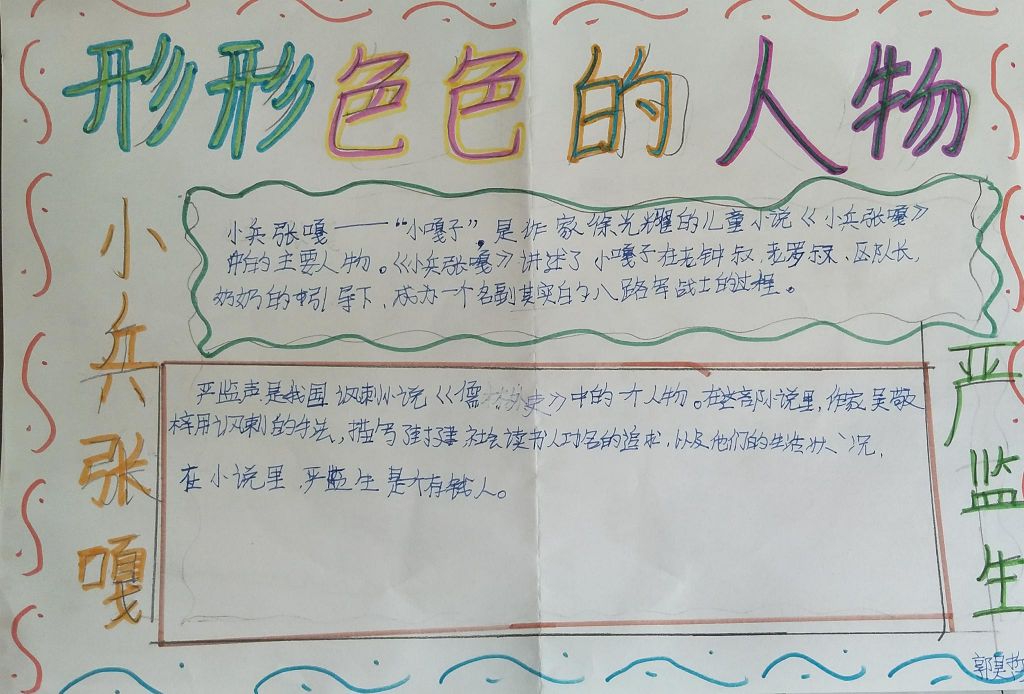 形形色色的人物
小兵张嘎
小兵张嘎——“小嘎子”，是作家徐光耀的儿童小说《小兵张嘎》
中的主要人物。《小兵张嘎》讲述了小嘎子在老钟叔，老罗叔，区队长，
奶奶的引导下，成为一个名副其实的八路军战士的过程。
严监声是我国讽刺小说《儒林外史》中的个人物。在这部小说里，作家吴敬
梓用讽刺的手法，描写了封建社会读书人功名的追求，以及他们的生活状况，
在小说里，严监生是个有钱人。
严监生